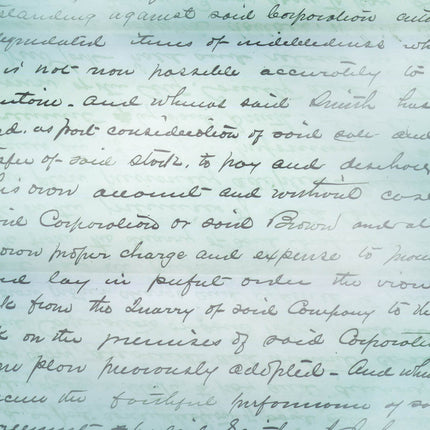 standing against said Corporation and
liquidated items of indebtedness wh
is not now possible accurately to
- and whereas said Smith has
d, as part consideration of said sale and
sfer of said stock, to pay and discharge
his own account and without cost
aid Corporation or said Brown and at
own proper charge and expense to
nd lay in perfect order the
k from the Quarry of said Company to the
k on the premises of said Corporation
me plan previously adopted - And whe
the faithful performance of sa
said